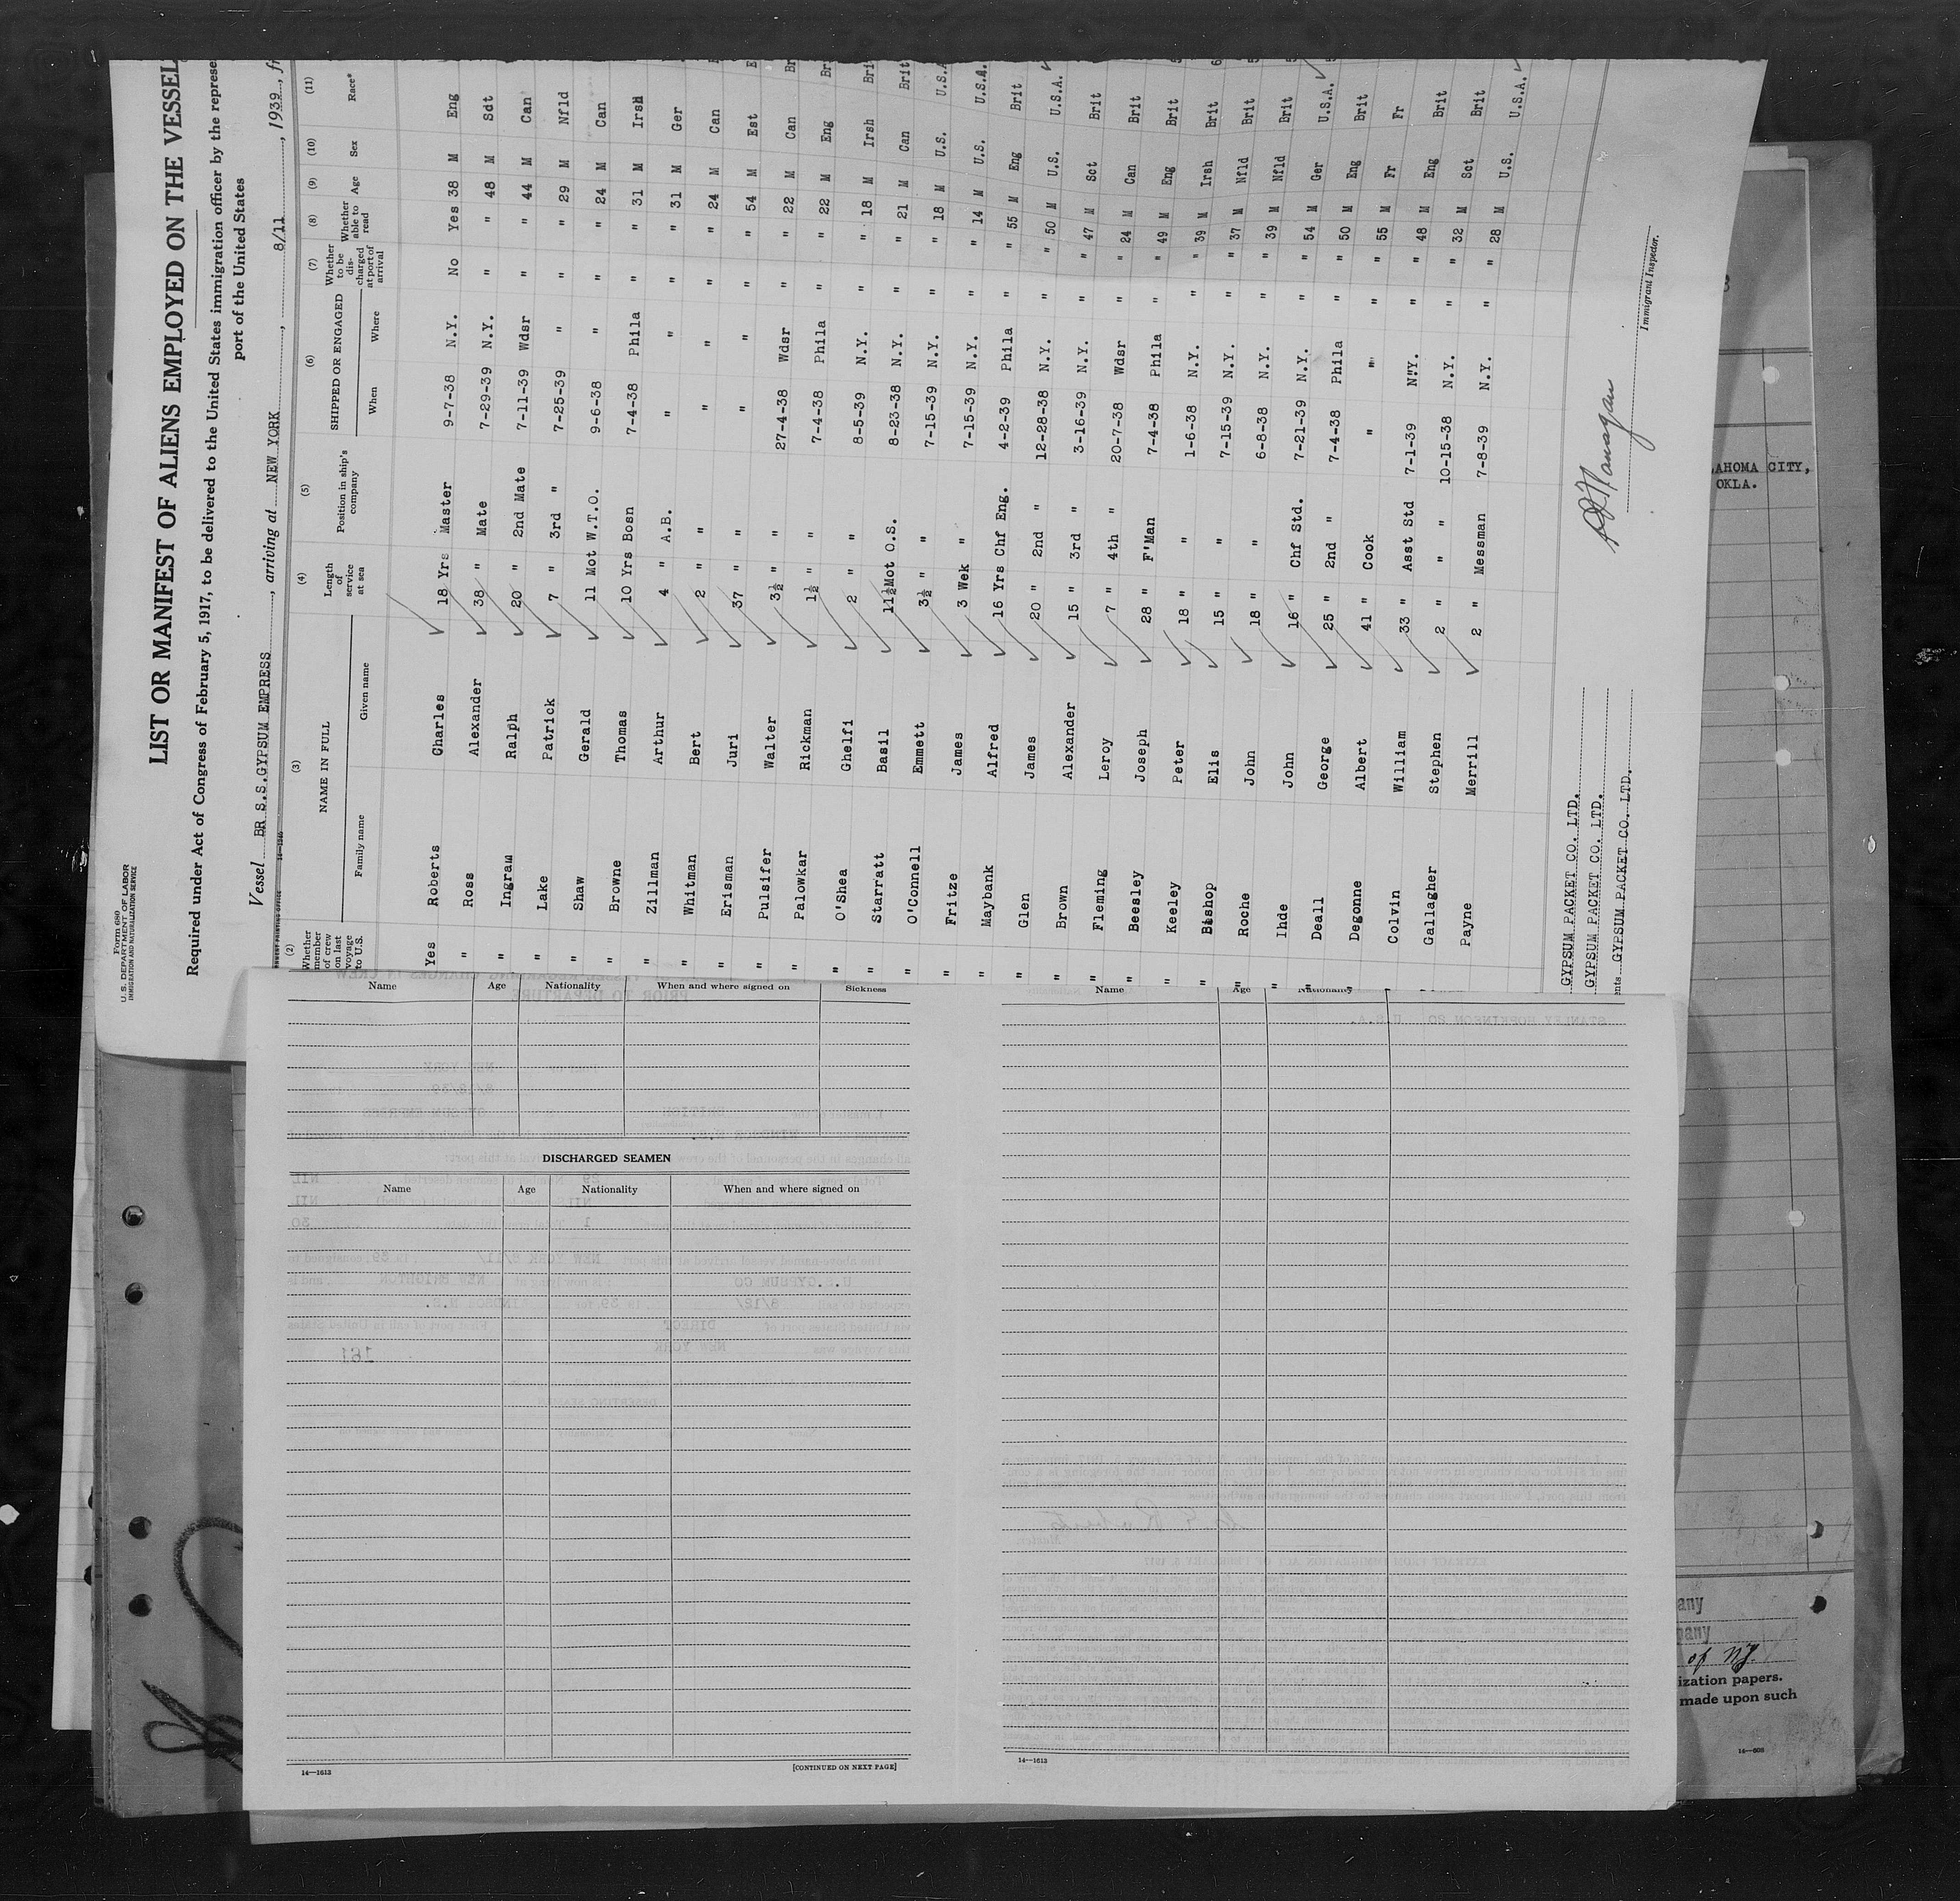 Form 680
U. S. DEPARTMENT OF LABOR
IMMIGRATION AND NATURALIZATION SERVICE
LIST OR MANIFEST OF ALIENS EMPLOYED ON THE VESSEL
Required under Act of Congress of February 5, 1917, to be delivered to the United States immigration officer by the represe
port of the United States
Vessel BR S.S.GYPSUM EMPRESS, arriving at NEW YORK, 8/11, 1939, fr
(2) (3) (4) (5) (6) (7) (8) (9) (10) (11)
Whether member of crew on last voyage to U.S. NAME IN FULL Family name Given name Length of service at sea Position in ship's company SHIPPED OR ENGAGED When Where Whether to be discharged at port of arrival Whether able to read Age Sex Race*
Yes Roberts Charles 18 Yrs Master 9-7-38 N.Y. No Yes 38 M Eng
" Ross Alexander 38 " Mate 7-29-39 N.Y. " " 48 M Sdt
" Ingram Ralph 20 " 2nd Mate 7-11-39 Wdsr " " 44 M Can
" Lake Patrick 7 " 3rd " 7-25-39 " " " 29 M Nfld
" Shaw Gerald 11 Mot W.T.O. 9-6-38 " " " 24 M Can
" Browne Thomas 10 Yrs Bosn 7-4-38 Phila " " 31 M Irsh
" Zillman Arthur 4 " A.B. " " " " 31 M Ger
" Whitman Bert 2 " " " " " " 24 M Can
" Erisman Juri 37 " " " " " 54 M Est
" Pulsifer Walter 3½ " " 27-4-38 Wdsr " " 22 M Can Br
" Palowkar Rickman 1½ " " 7-4-38 Phila " " 22 M Eng Br
" O'Shea Ghelfi 2 " " 8-5-39 N.Y. " " 18 M Irsh Bri
" Starratt Basil 11½Mot O.S. 8-23-38 N.Y. " " 21 M Can Brit
" O'Connell Emmett 3½ " " 7-15-39 N.Y. " " 18 M U.S. U.S.A
" Fritze James 3 Wek " 7-15-39 N.Y. " " 14 M U.S. U.S.A.
" Maybank Alfred 16 Yrs Chf Eng. 4-2-39 Phila " " 55 M Eng Brit
" Glen James 20 " 2nd " 12-28-38 N.Y. " " 50 M U.S. U.S.A.
Brown Alexander 15 " 3rd " 3-16-39 N.Y. " " 47 M Sct Brit
" Fleming Leroy 7 " 4th " 20-7-38 Wdsr " " 24 M Can Brit
" Beesley Joseph 28 " F'Man 7-4-38 Phila " " 49 M Eng Brit
" Keeley Peter 18 " " 1-6-38 N.Y. " " 39 M Irsh Brit
" Bishop Elis 15 " " 7-15-39 N.Y. " " 37 M Nfld Brit
" Roche John 18 " " 6-8-38 N.Y. " " 39 M Nfld Brit
" Ihde John 16 " Chf Std. 7-21-39 N.Y. " " 54 M Ger U.S.A.
" Deall George 25 " 2nd " 7-4-38 Phila " " 50 M Eng Brit
Degonne Albert 41 " Cook " " " " 55 M Fr Fr
" Colvin William 33 " Asst Std 7-1-39 N.Y. " " 48 M Eng Brit
Gallagher Stephen 2 " " " 10-15-38 N.Y. " " 32 M Sct Brit
Payne Merrill 2 " Messman 7-8-39 N.Y. " " 28 M U.S. U.S.A.
GYPSUM PACKET CO. LTD.
GYPSUM PACKET CO. LTD.
ents GYPSUM PACKET CO. LTD.
Immigrant Inspector.
AHOMA CITY,
OKLA.
Name Age Nationality When and where signed on Sickness
DISCHARGED SEAMEN
Name Age Nationality When and where signed on
14—1613
[CONTINUED ON NEXT PAGE]
Name Age Nationality
14—1613
any
pany
of NY.
ization papers.
made upon such
14—608